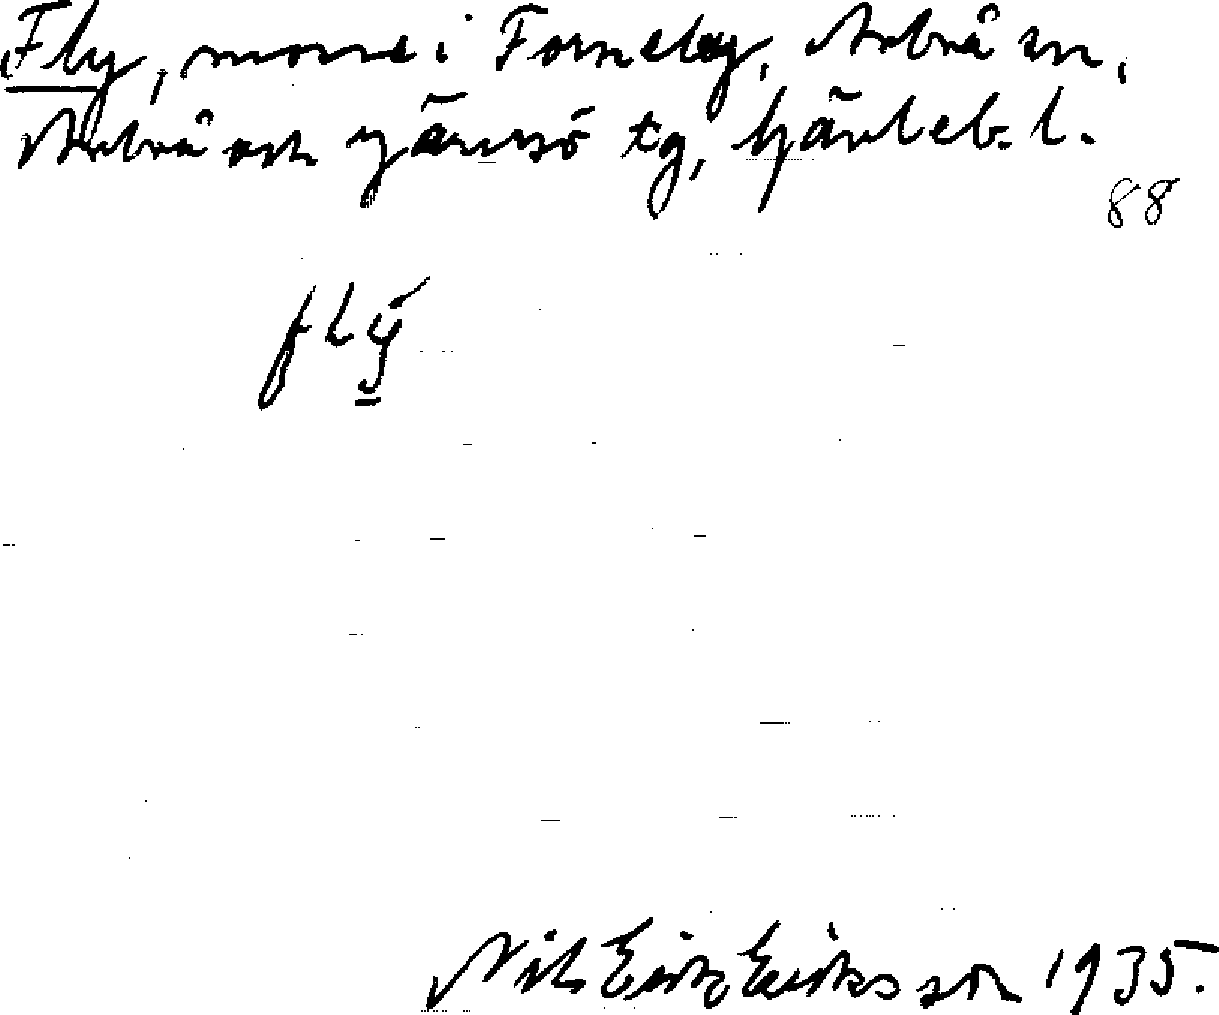 Fly, mosse i Forneby, Arbrå sn,
Arbrå och Järvsö tg, Gävleb. l.
88
flý
Nils Erik Eriksson 1935.